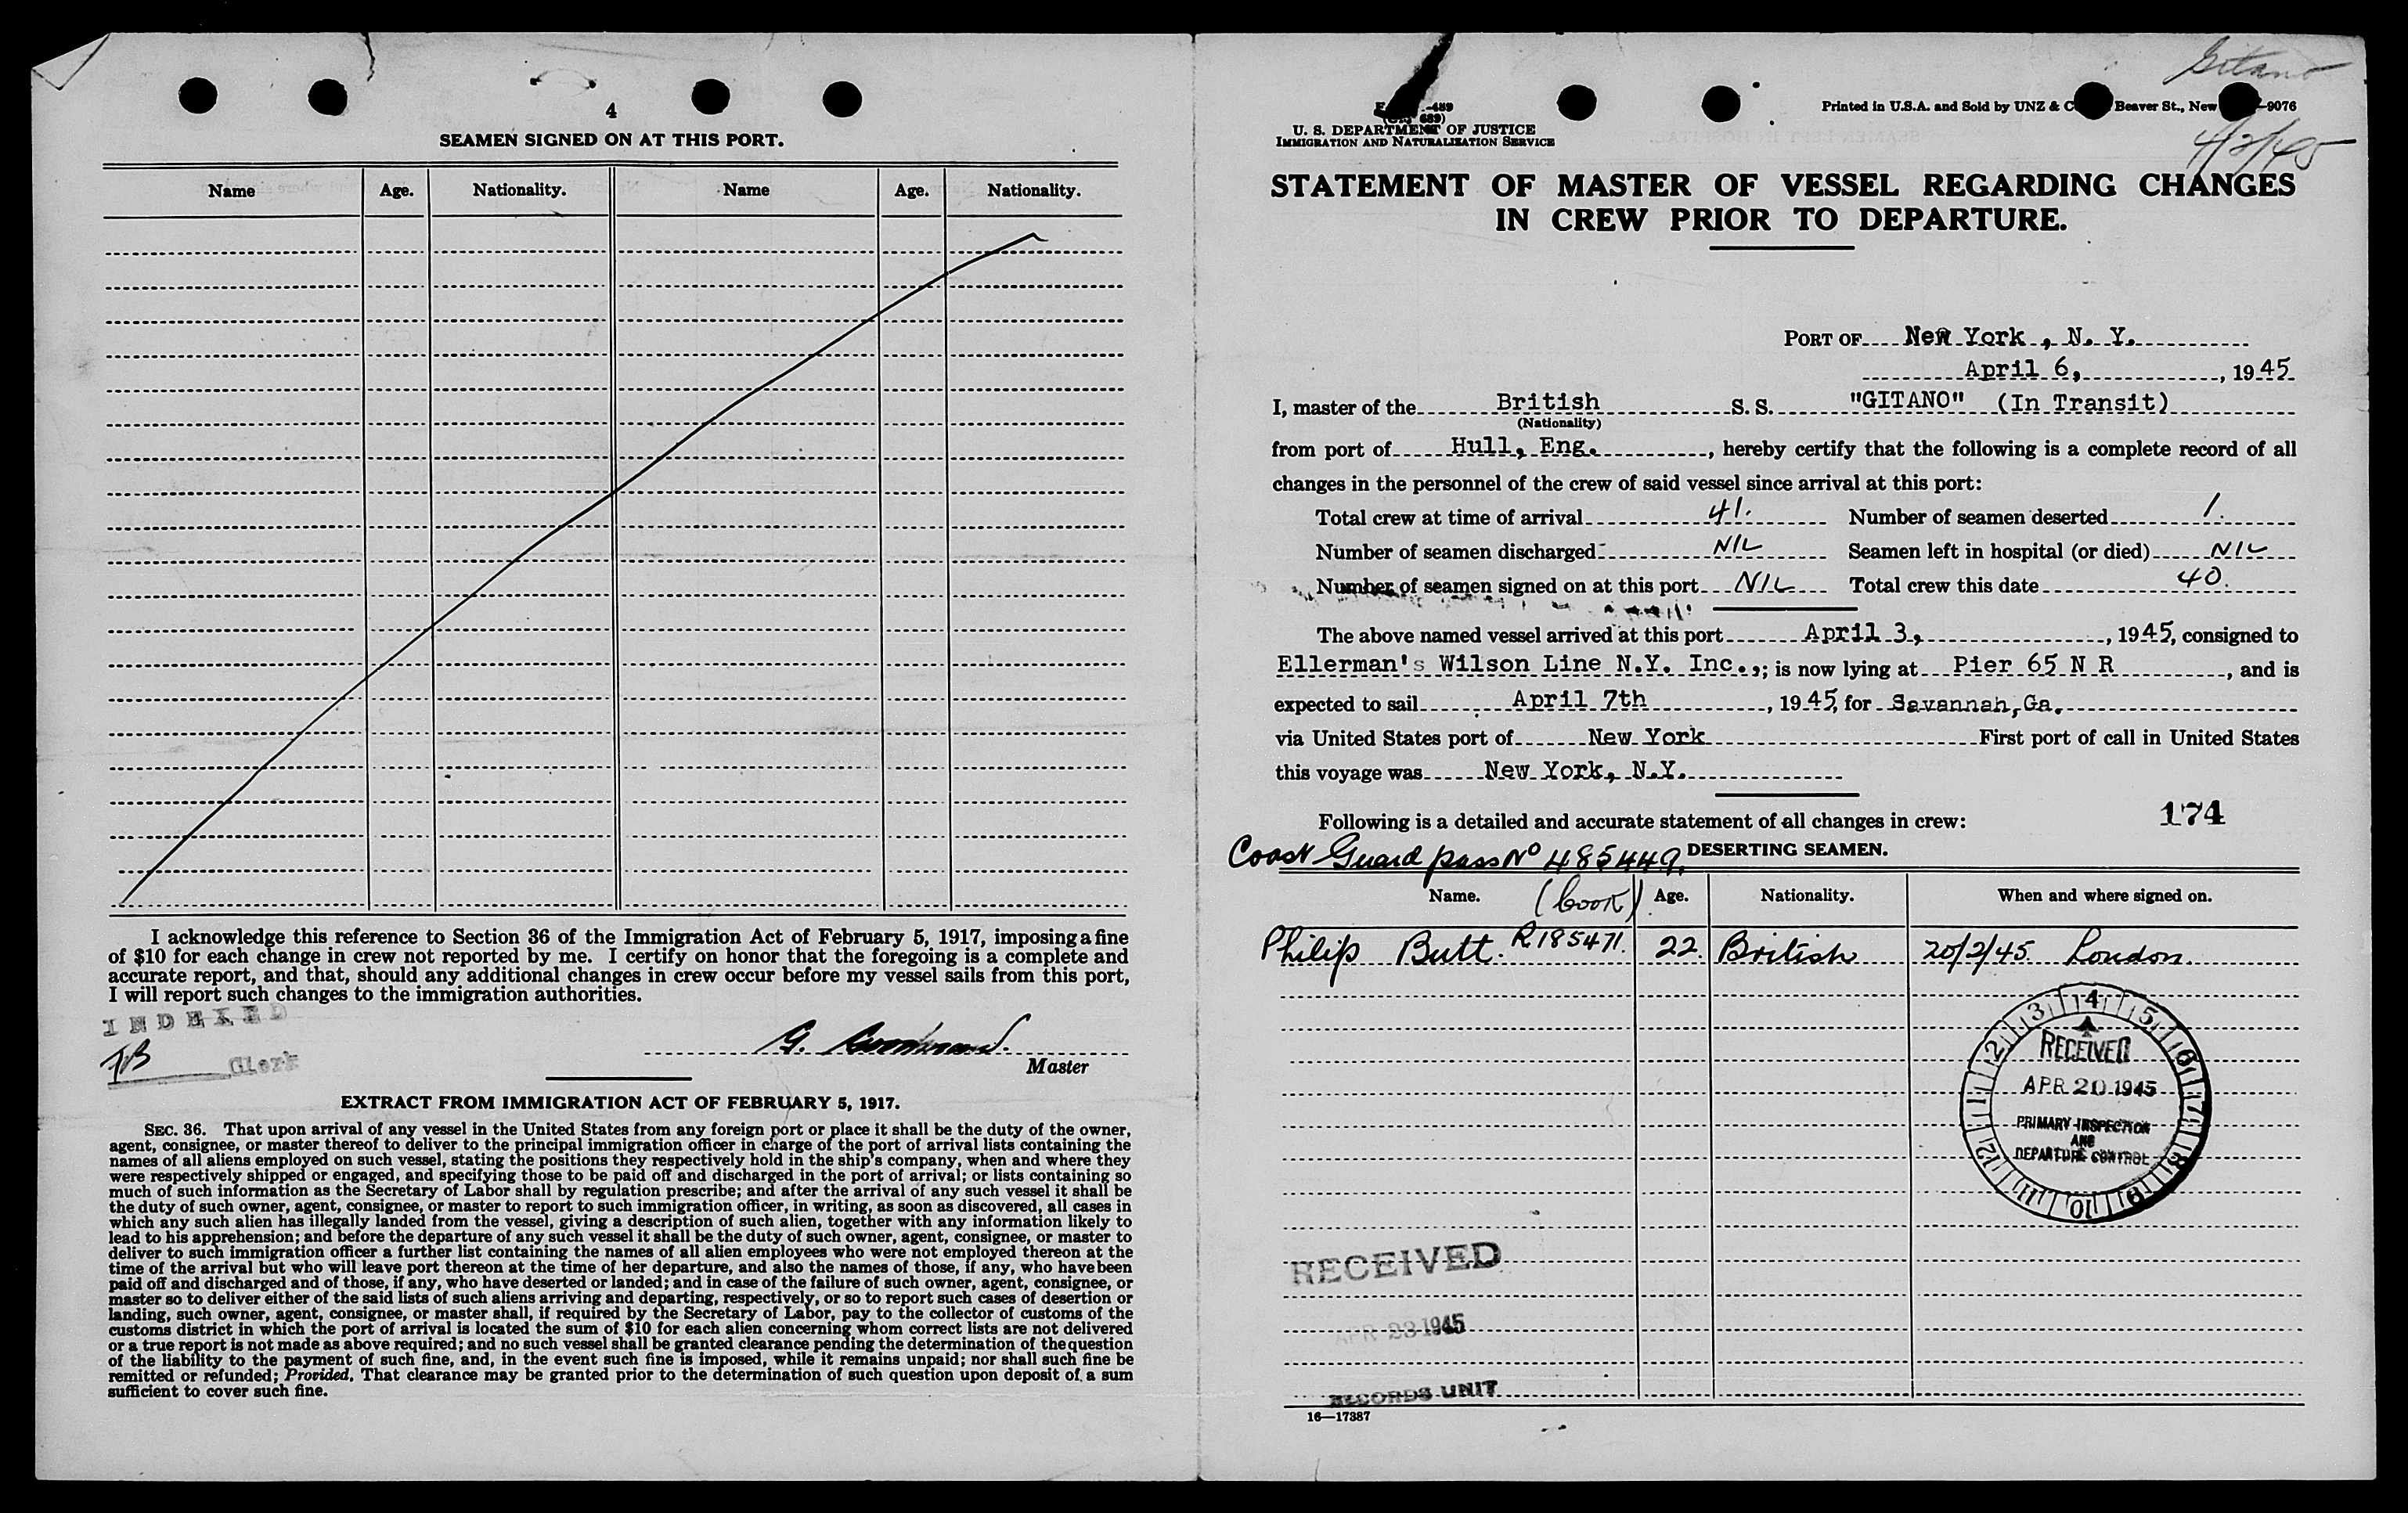 4
SEAMEN SIGNED ON AT THIS PORT.
Name Age. Nationality. Name Age. Nationality.
I acknowledge this reference to Section 36 of the Immigration Act of February 5, 1917, imposing a fine
of $10 for each change in crew not reported by me. I certify on honor that the foregoing is a complete and
accurate report, and that, should any additional changes in crew occur before my vessel sails from this port,
I will report such changes to the immigration authorities.
INDEXED
Clerk
G.
Master
EXTRACT FROM IMMIGRATION ACT OF FEBRUARY 5, 1917.
SEC. 36. That upon arrival of any vessel in the United States from any foreign port or place it shall be the duty of the owner,
agent, consignee, or master thereof to deliver to the principal immigration officer in charge of the port of arrival lists containing the
names of all aliens employed on such vessel, stating the positions they respectively hold in the ship's company, when and where they
were respectively shipped or engaged, and specifying those to be paid off and discharged in the port of arrival; or lists containing so
much of such information as the Secretary of Labor shall by regulation prescribe; and after the arrival of any such vessel it shall be
the duty of such owner, agent, consignee, or master to report to such immigration officer, in writing, as soon as discovered, all cases in
which any such alien has illegally landed from the vessel, giving a description of such alien, together with any information likely to
lead to his apprehension; and before the departure of any such vessel it shall be the duty of such owner, agent, consignee, or master to
deliver to such immigration officer a further list containing the names of all alien employees who were not employed thereon at the
time of the arrival but who will leave port thereon at the time of her departure, and also the names of those, if any, who have been
paid off and discharged and of those, if any, who have deserted or landed; and in case of the failure of such owner, agent, consignee, or
master so to deliver either of the said lists of such aliens arriving and departing, respectively, or so to report such cases of desertion or
landing, such owner, agent, consignee, or master shall, if required by the Secretary of Labor, pay to the collector of customs of the
customs district in which the port of arrival is located the sum of $10 for each alien concerning whom correct lists are not delivered
or a true report is not made as above required; and no such vessel shall be granted clearance pending the determination of the question
of the liability to the payment of such fine, and, in the event such fine is imposed, while it remains unpaid; nor shall such fine be
remitted or refunded; Provided, That clearance may be granted prior to the determination of such question upon deposit of a sum
sufficient to cover such fine.
Gitano
4/3/45
-489
689)
U. S. DEPARTMENT OF JUSTICE
IMMIGRATION AND NATURALIZATION SERVICE
Printed in U.S.A. and Sold by UNZ & C Beaver St., New -9076
STATEMENT OF MASTER OF VESSEL REGARDING CHANGES
IN CREW PRIOR TO DEPARTURE.
PORT OF New York , N. Y.
April 6, , 1945
I, master of the British S. S. "GITANO" (In Transit)
(Nationality)
from port of Hull, Eng. , hereby certify that the following is a complete record of all
changes in the personnel of the crew of said vessel since arrival at this port:
Total crew at time of arrival 41. Number of seamen deserted 1.
Number of seamen discharged NIL Seamen left in hospital (or died) NIL
Number of seamen signed on at this port NIL Total crew this date 40.
The above named vessel arrived at this port April 3, , 1945, consigned to
Ellerman's Wilson Line N.Y. Inc.,; is now lying at Pier 65 N R , and is
expected to sail April 7th , 1945, for Savannah, Ga.
via United States port of New York First port of call in United States
this voyage was New York, N.Y.
Following is a detailed and accurate statement of all changes in crew: 174
Coast Guard pass No 485449. DESERTING SEAMEN.
Name. (Cook) Age. Nationality. When and where signed on.
Philip Butt. R185471. 22. British 20/2/45 London.
1 2 3 4 5 6 7 8 9 10 11 12
RECEIVED
APR 20 1945
PRIMARY INSPECTION
AND
DEPARTURE CONTROL
RECEIVED
APR 23 1945
RECORDS UNIT
16—17387